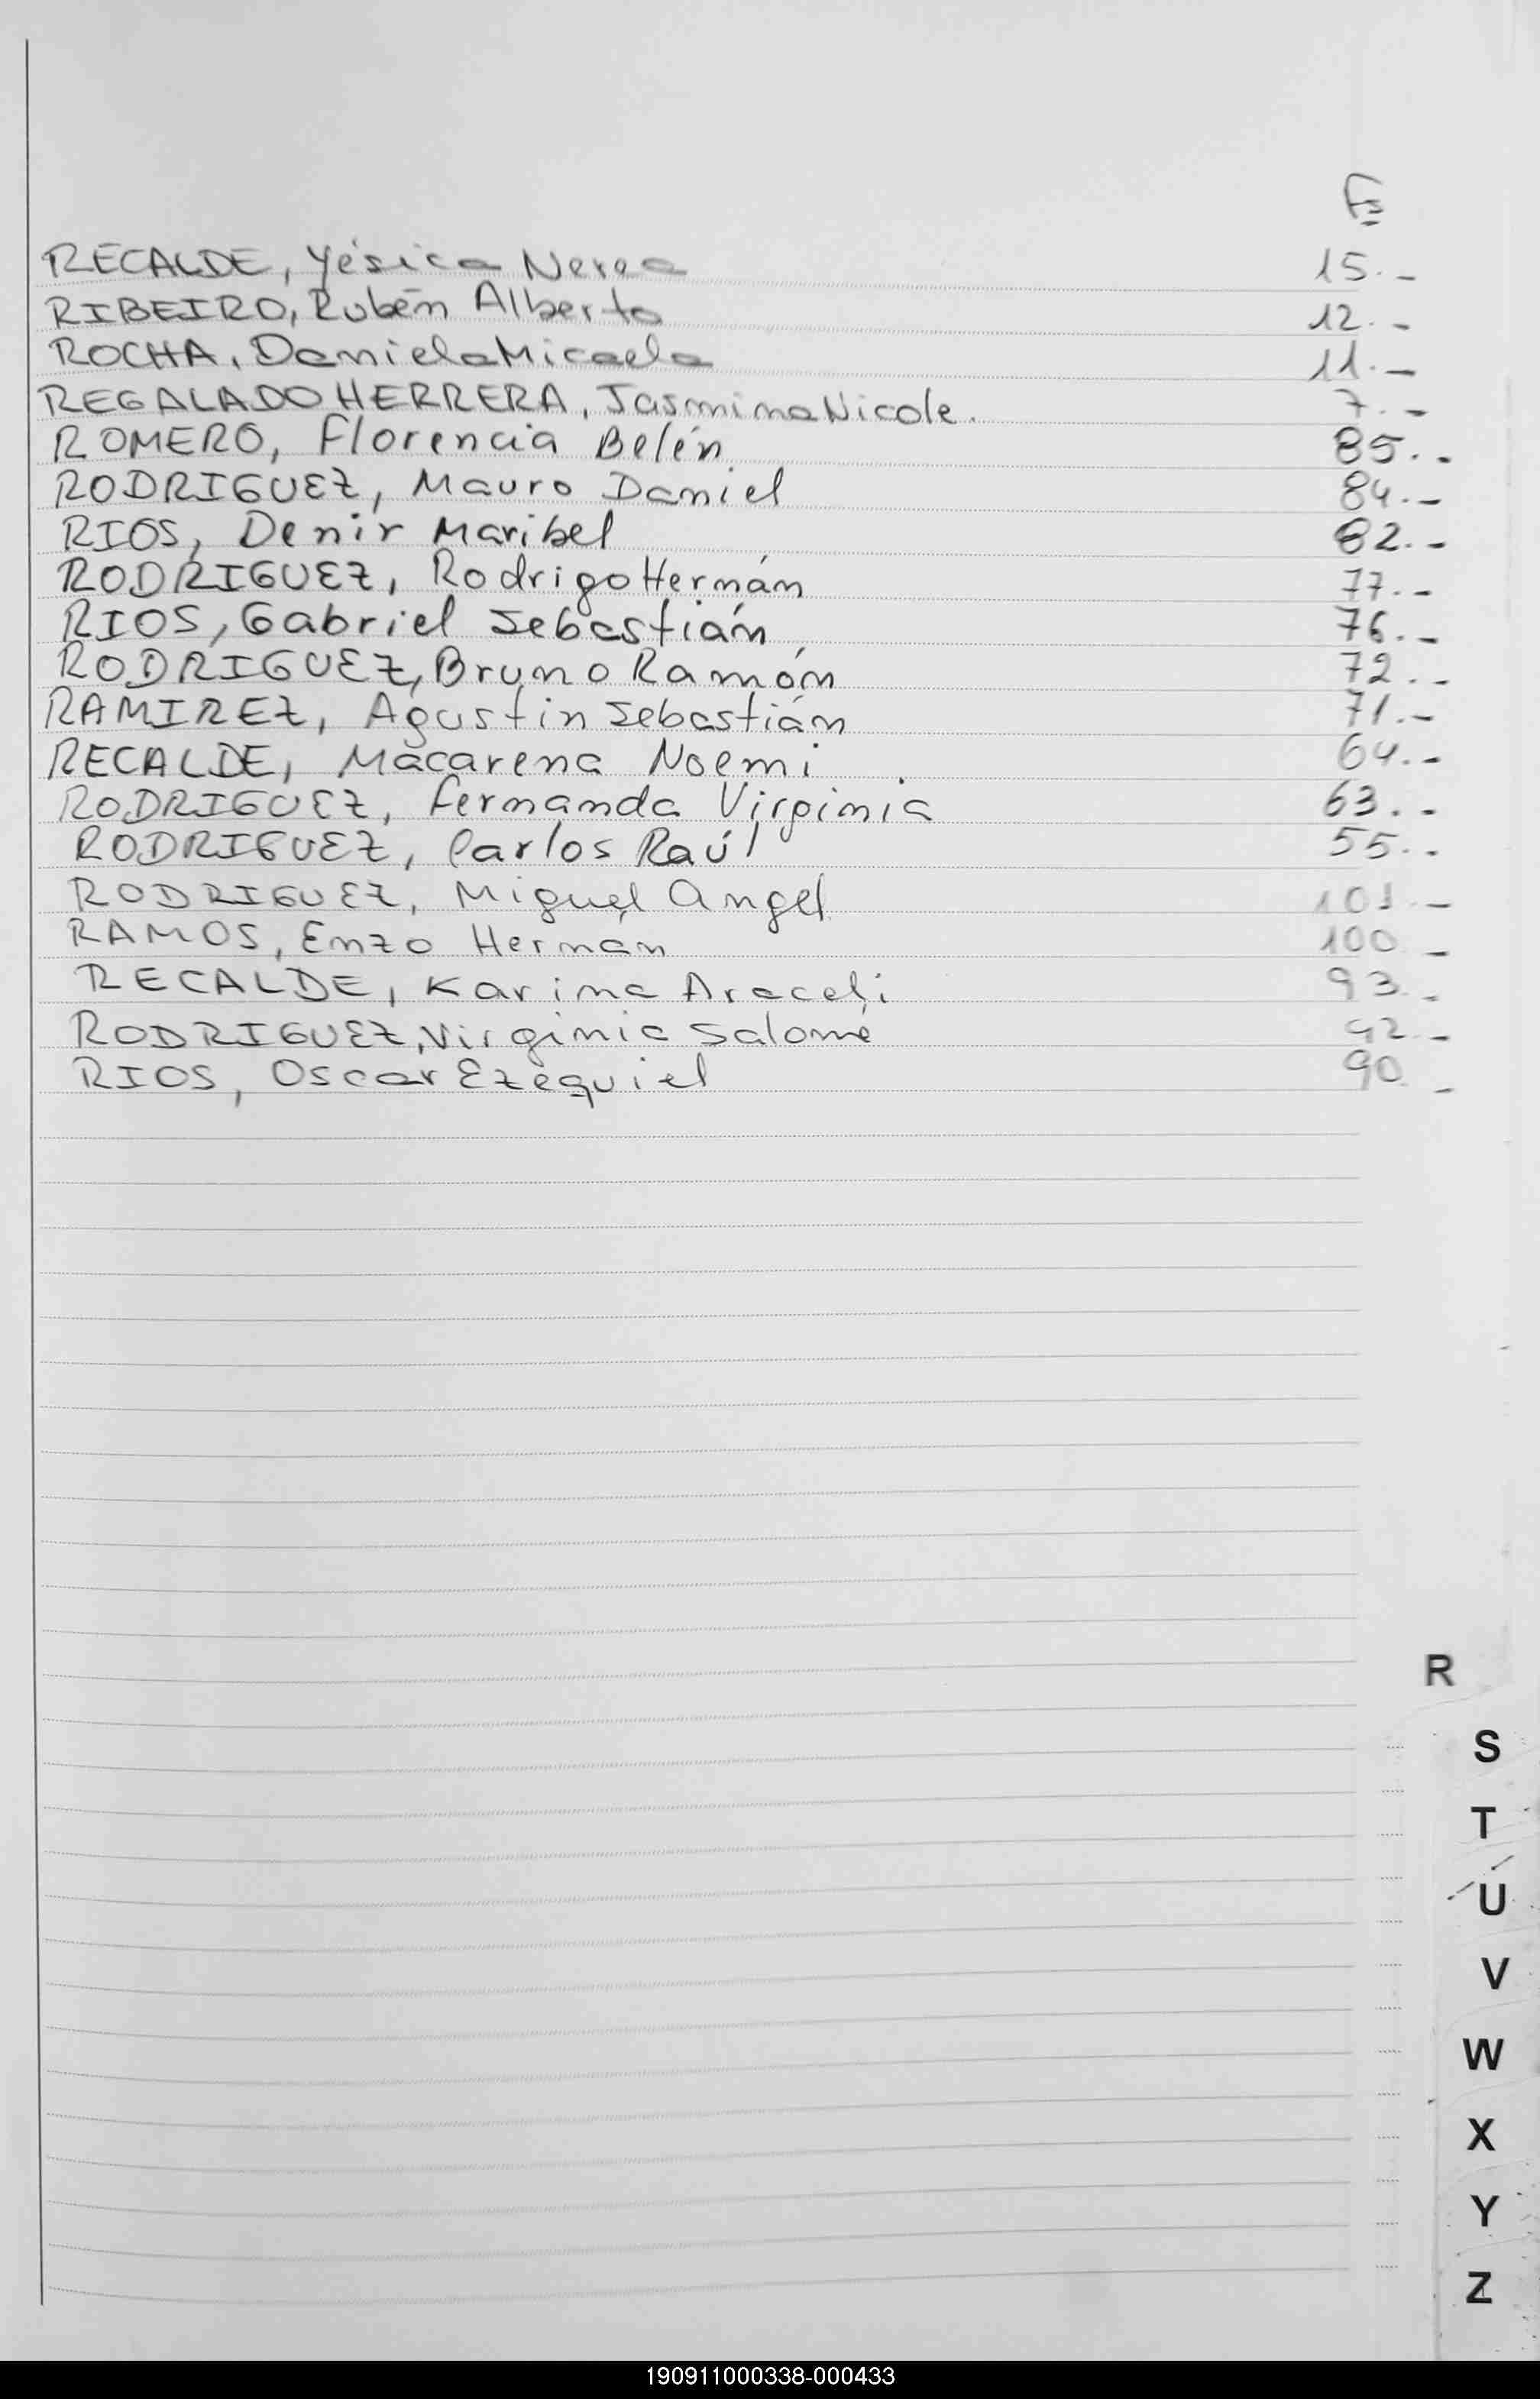 Fs
RECALDE, Yésica Nerea 15.-
RIBEIRO, Rubén Alberto 12.-
ROCHA, Daniela Micaela 11.-
REGALADO HERRERA, Jasmina Nicole. 7.-
ROMERO, Florencia Belén 85.-
RODRIGUEZ, Mauro Daniel 84.-
RIOS, Denir Maribel 82.-
RODRIGUEZ, Rodrigo Hernán 77.-
RIOS, Gabriel Sebastián 76.-
RODRIGUEZ, Bruno Ramón 72.-
RAMIREZ, Agustin Sebastián 71.-
RECALDE, Macarena Noemi 64.-
RODRIGUEZ, Fernanda Virginia 63.-
RODRIGUEZ, Carlos Raúl 55.-
RODRIGUEZ, Miguel Angel 101.-
RAMOS, Enzo Hernán 100.-
RECALDE, Karina Araceli 93.-
RODRIGUEZ, Virginia Salomé 92.-
RIOS, Oscar Ezequiel 90.-
R
S
T
U
V
W
X
Y
Z
190911000338-000433